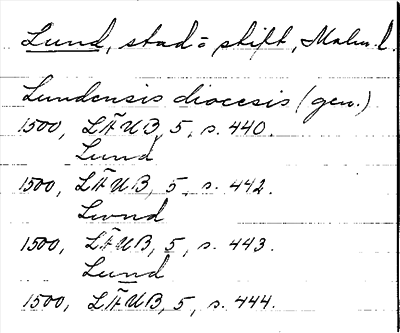 Lund, stad = stift, Malm. l.
Lundensis diocesis (gen.)
1500, LÄUB, 5, s. 440.
Lund
1500, LÄUB, 5, s. 442.
Lwnd
1500, LÄUB, 5, s. 443.
Lund
1500, LÄUB, 5, s. 444.